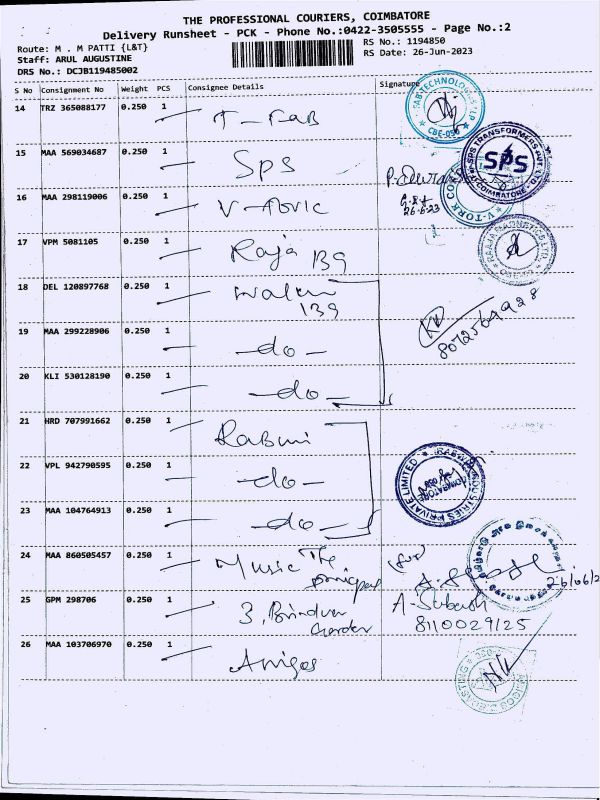 THE PROFESSIONAL COURIERS, COIMBATORE
Delivery Runsheet - PCK - Phone No.:0422-3505555 - Page No.:2
Route: M . M PATTI {L&T}
RS No.: 1194850
Staff: ARUL AUGUSTINE
RS Date: 26-Jun-2023
DRS No.: DCJB119485002
S No Consignment No Weight PCS Consignee Details Signature
14 TRZ 365088177 0.250 1 T-Fab
CBE-050
15 MAA 569034687 0.250 1 SPS
SPS TRANSFORMERS PVT. LTD.
SPS
COIMBATORE
16 MAA 298119006 0.250 1
26-6-23
V-TORK
17 VPM 5081105 0.250 1 Raja 139
18 DEL 120897768 0.250 1
139
19 MAA 299228906 0.250 1 -do-
8072569928
20 KLI 530128190 0.250 1 -do-
21 HRD 707991662 0.250 1
22 VPL 942790595 0.250 1 -do-
INDUSTRIES PRIVATE LIMITED
23 MAA 104764913 0.250 1 -do-
24 MAA 860505457 0.250 1 Music The
26/06/2
25 GPM 298706 0.250 1 3, Brindvan
A-Subash
8110029125
26 MAA 103706970 0.250 1 Amigos